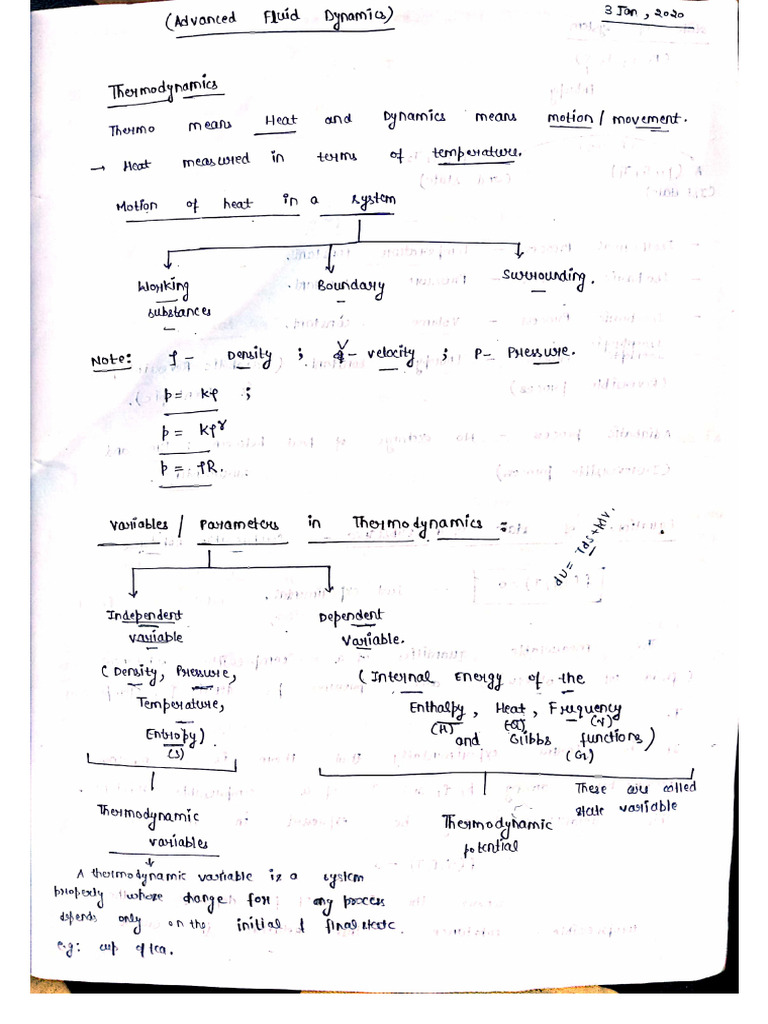 (Advanced Fluid Dynamics)
3 Jan, 2020
Thermodynamics
Thermo means Heat and Dynamics means motion / movement.
→ Heat measured in terms of temperature.
Motion of heat in a system
Working substances
Boundary
Surrounding.
Note: ρ - Density ; V - velocity ; P - Pressure.
p = kρ ;
p = kρ^γ
p = ρR.
Variables / Parameters in Thermodynamics :
du = Tds + pdv.
Independent variable
Dependent Variable.
(Density, Pressure,
Temperature,
Entropy)
(S)
(Internal Energy of the
Enthalpy, Heat, Frequency
(H) (Q) (V)
and Gibbs functions)
(G)
Thermodynamic variables
Thermodynamic potential
These are called
state variable
A thermodynamic variable is a system
property whose change for any process
depends only on the initial & final state.
e.g: cup of tea.